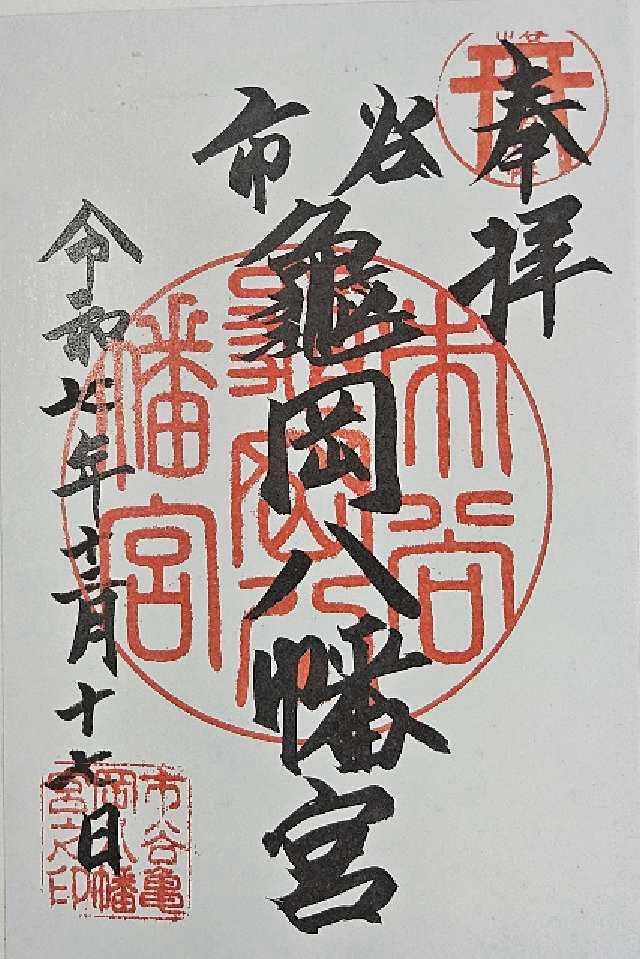 奉拝
市谷
亀岡八幡宮
令和七年十二月十七日
市谷
市谷亀岡八幡宮
市谷亀岡八幡宮之印